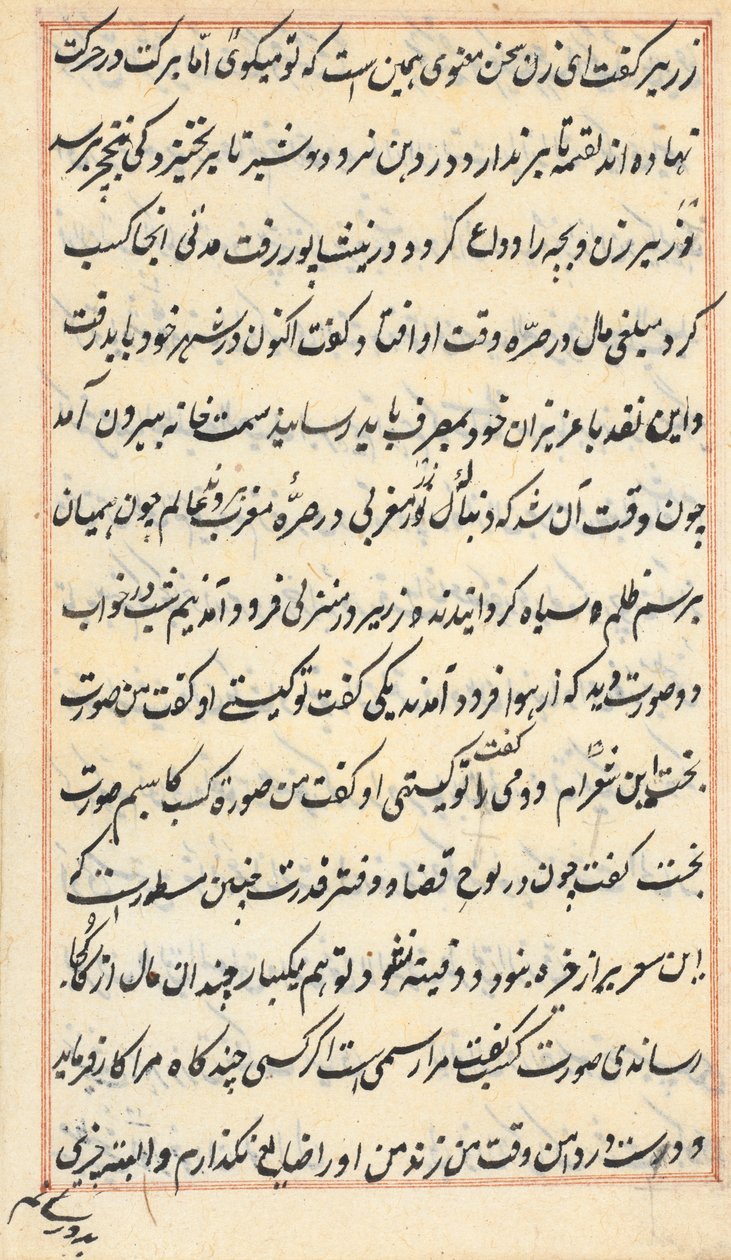 زریر کفت ای زن سخن معنوی همین است که تو میکوئی اما برکت در حرکت
نهاده اند لقمه تا برندارد در دهن نرود و شیر تا برنخیزد کی بنخچیر رسد
زریر زن و بچه را وداع کرد و در نیشاپور رفت مدتی انجا کسب
کرد مبلغی مال در صره وقت او افتاد کفت اکنون در شهر خود باید رفت
و این نقد با عزیزان خود بمصرف باید رسانید سمت خانه بیرون آمد
چون وقت آن شد که زر مغربی در صره مغرب عالم چون همیان
برسنم ظلم سیاه کردانیدند زریر در منزلی فرود آمد نیم شب در خواب
دو صورت دید که از هوا فرود آمدند یکی کفت تو کیستے او کفت من صورت
بخت این ام دومی را کفت تو کیستی او کفت من صورة کسب کاسبم صورت
بخت کفت چون در لوح قضا و دفتر قدرت چنین مسطور است که
این بیر از خره بنود و دقیته نقود تو هم یکبار چندان مال از کجا
رساندی صورت کسب کفت مرا رسمی است اکر کسی چند کاه مرا کار فرماید
و دست در دامن وقت من زند من او را ضایع نکذارم و البته چیزی
بدو